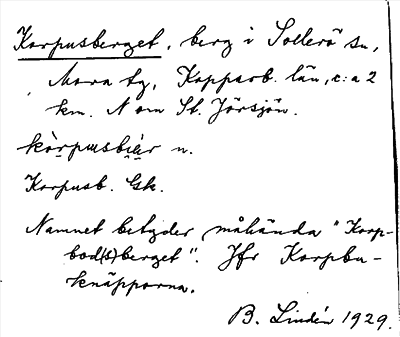 Korpusberget, berg i Sollerö sn,
Mora tg, Kopparb. län, c:a 2
km. N om St. Jörsjön.
kòrpusbiär n.
Korpusb. Gsk.
Namnet betyder måhända "Korp-
bod(s)berget". Jfr Korpbu-
knäpporna.
B. Lindén 1929.